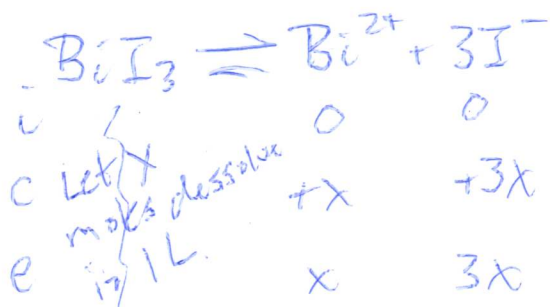 BiI₃ ⇌ Bi²⁺ + 3I⁻
i 0 0
c Let X moles dessolve in 1L. +x +3x
e x 3x